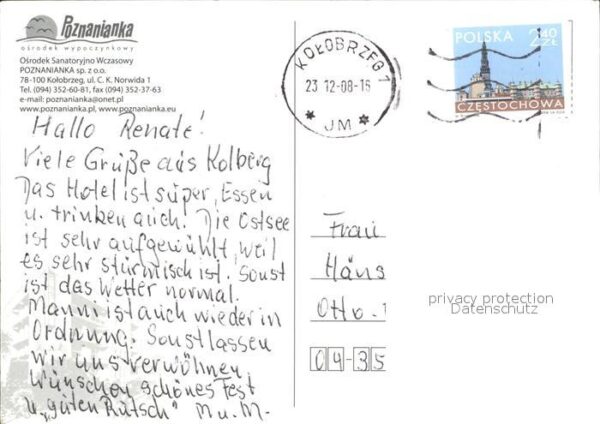 Poznanianka
ośrodek wypoczynkowy
Ośrodek Sanatoryjno Wczasowy
POZNANIANKA sp. z o.o.
78-100 Kołobrzeg, ul. C. K. Norwida 1
Tel. (094) 352-60-81, fax (094) 352-37-63
e-mail: poznanianka@onet.pl
www.poznanianka.pl, www.poznanianka.eu
Hallo Renate!
Viele Grüße aus Kolberg
Das Hotel ist super, Essen
u. trinken auch! Die Ostsee
ist sehr aufgewühlt, weil
es sehr stürmisch ist. Sonst
ist das Wetter normal.
Manni ist auch wieder in
Ordnung. Sonst lassen
wir uns verwöhnen,
Wünschen schönes Fest
u. „guten Rutsch" M u. M.
KOŁOBRZEG 1
23 12-08-15
* JM *
POLSKA 2,40 ZŁ
CZĘSTOCHOWA
Frau
Häns
Otto-
04-35
privacy protection
Datenschutz